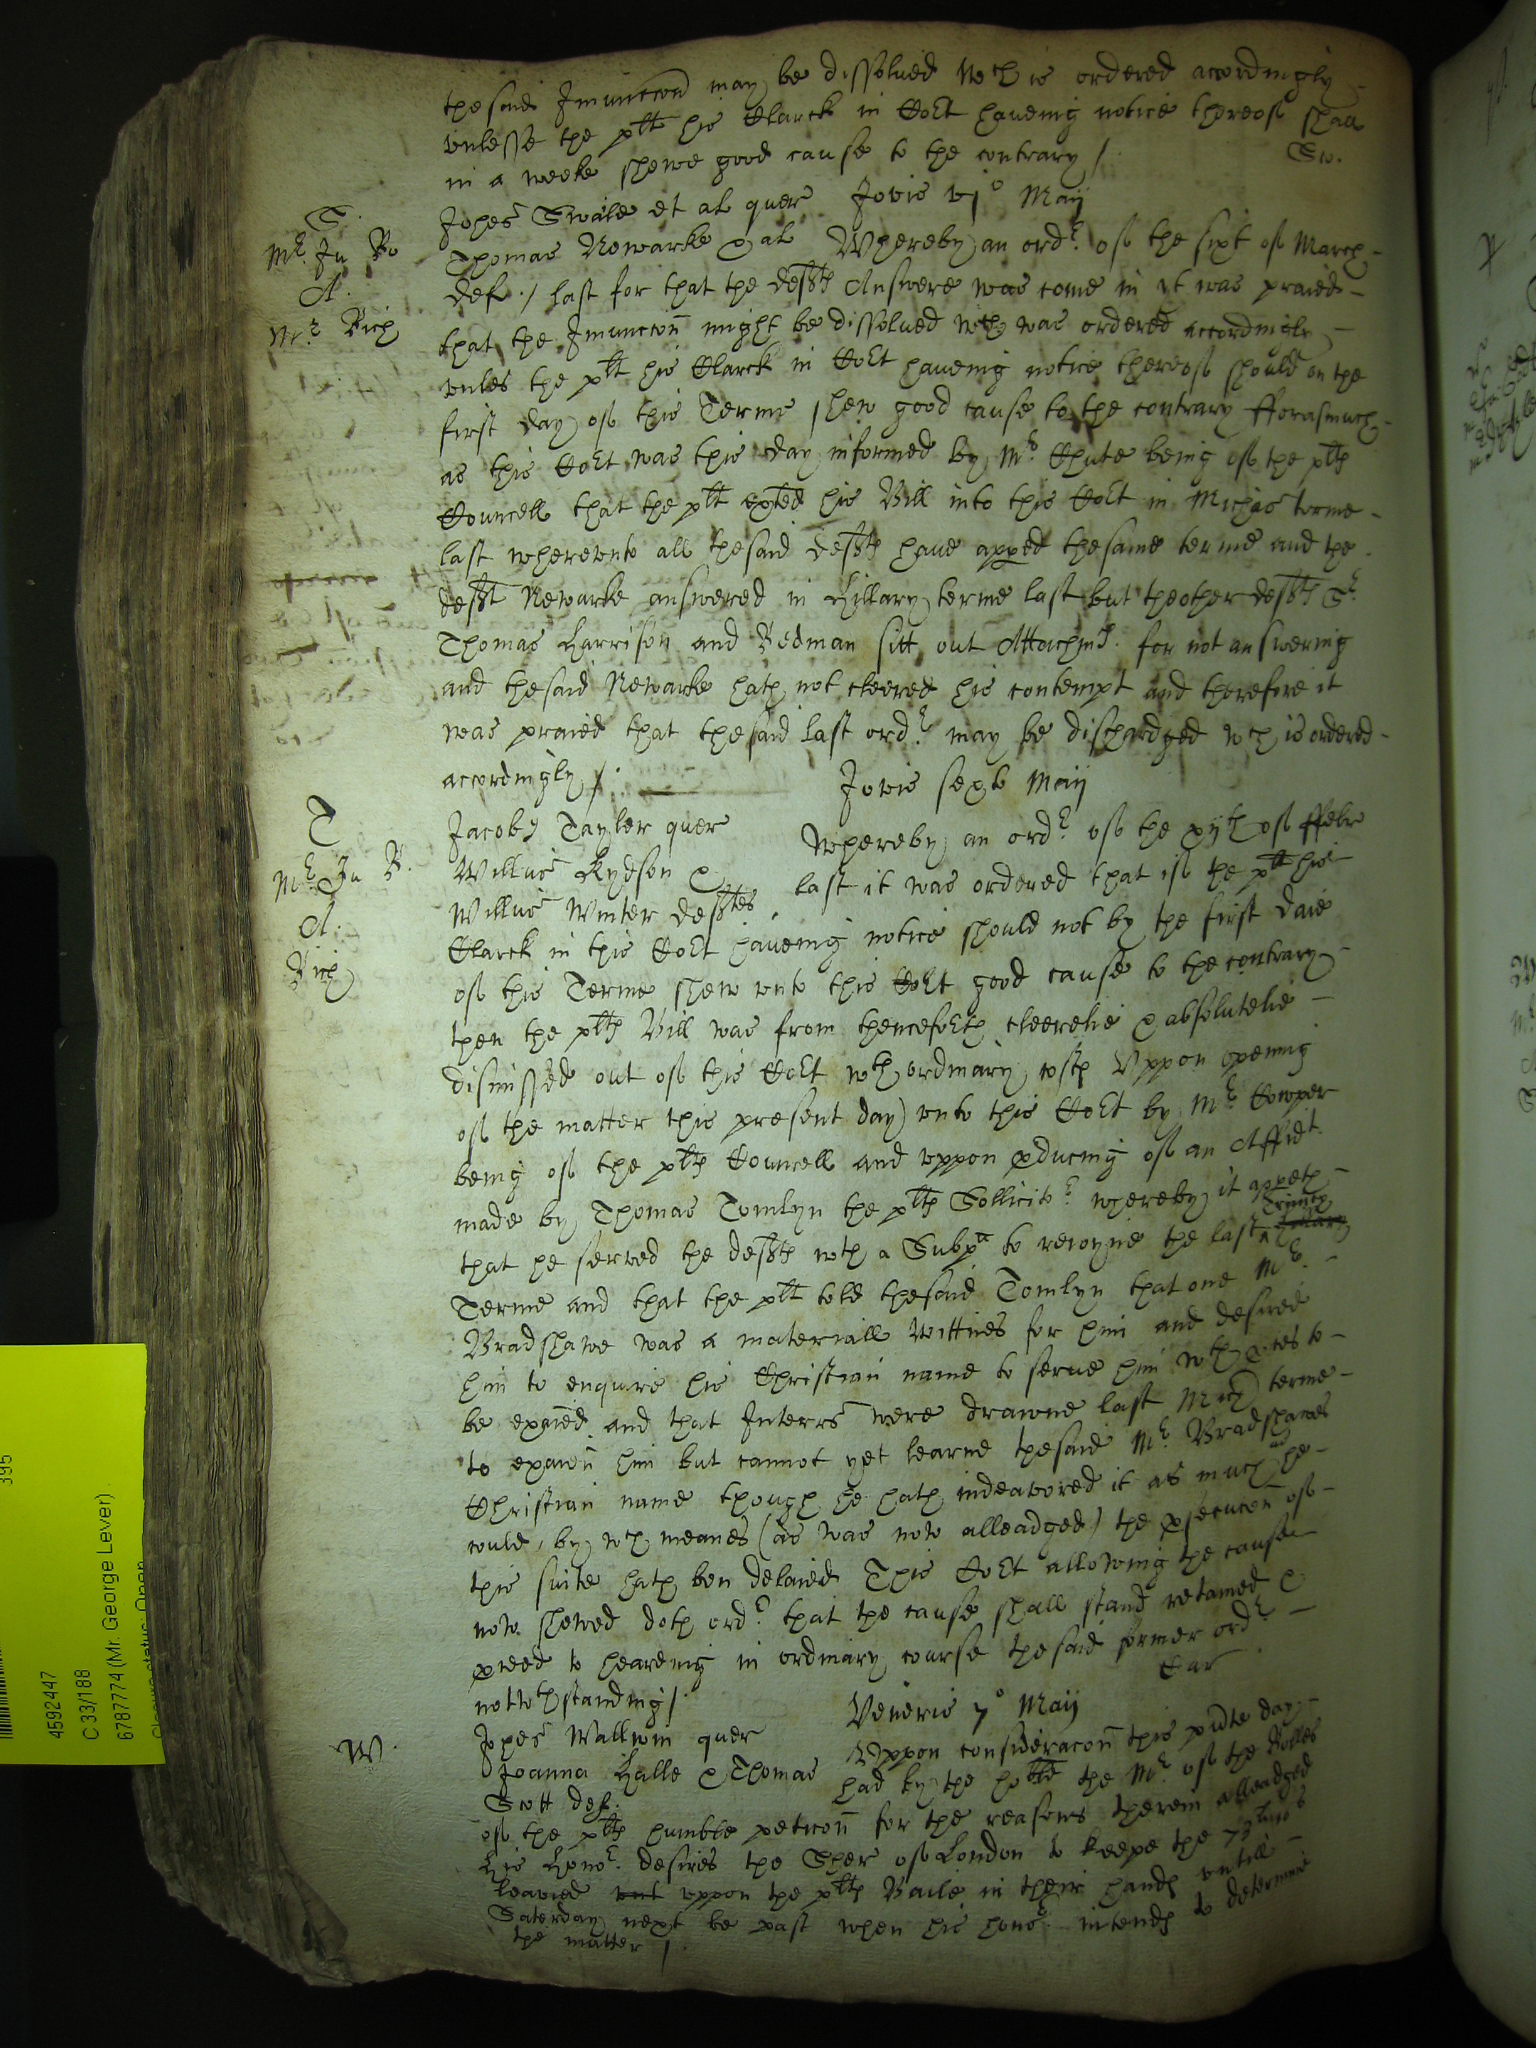 the said Iniunccon may be dissolued wch is ordered accordingly
vnlesse the plt his Clarck in Cort haueing notice thereof shall
in a weeke shewe good cause to the contrary /
Sw.
S.
Johes Swale et al quer Jovis vjo Maij
Mr. Ju Bo
Thomas Newarke & al Whereby an ordr of the sixt of March
A.
def ./ last for that the defts Answere was come in it was praied
Mr. Rich
that the Iniunccon might be dissolued wch was ordered accordingly
vnles the plt his Clarck in Cort haueing notice thereof should on the
first day of this Terme shew good cause to the contrary fforasmuch
as this Cort was this day informed by Mr Chute being of the plts
Councell that the plt exhted his Bill into this Cort in Michas terme
last wherevnto all the said defts haue apped the same terme and the
deft Newarke answered in Hillary terme last but the other defts Sr
Thomas Harrison and Redman sitt out Attachmts for not answering
and the said Newarke hath not cleered his contempt and therefore it
was praied that the said last ordr may be dischardged wch is ordered
accordingly /.
Jovis sexto Maij
T
Jacobs Tayler quer Whereby an ordr of the xijth of ffebr
Mr. Ju B.
Willus Kydson &
last it was ordered that if the plt his
A.
Willus Winter deftes
Rich
Clarck in this Cort haueing notice should not by the first daie
of this Terme shew vnto this Cort good cause to the contrary
then the plts Bill was from thenceforth cleerelie & absolutelie
dismissed out of this Cort wth ordinary costs Vppon opening
of the matter this present day vnto this Cort by Mr Cowper
being of the plts Councell and vppon pducing of an Affidt
made by Thomas Tomlyn the plts Sollicitr whereby it appeth
that he served the defts wth a Subpa to reioyne the last Trinity Hillary
Terme and that the plt told the said Tomlyn that one Mr
Bradshawe was a materiall Wittnes for him and desired
him to enquire his Christian name to serue him wth pces to
be exaied and that Interrs were drawne last Mich terme
to exaien him but cannot yet learne the said Mr Bradshawes
Christian name though he hath indeavored it as much as he
could, by wch meanes (as was now alleadged) the psecucon of
this suite hath ben delaied This Cort allowing the cause
now shewed doth ordr that the cause shall stand retained &
pceed to heareing in ordinary course the said former ordr
notwthstanding /.
Car
W.
Johes Wallwin quer Veneris 7o Maij
Joanna Halle & Thomas Vppon consideracon this pnte day
Scott def. had by the hoble the Mr of the Rolles
of the plts humble peticon for the reasons therein alleadged
His Honor desires the Sher of London to keepe the 73 li 10s
leavied vnt vppon the plts Baile in their hands vntill
Saterday next be past when his honor intends to determine
the matter /.
395
4592447
C 33/188
6787774 (Mr. George Lever)
Closure status: Open